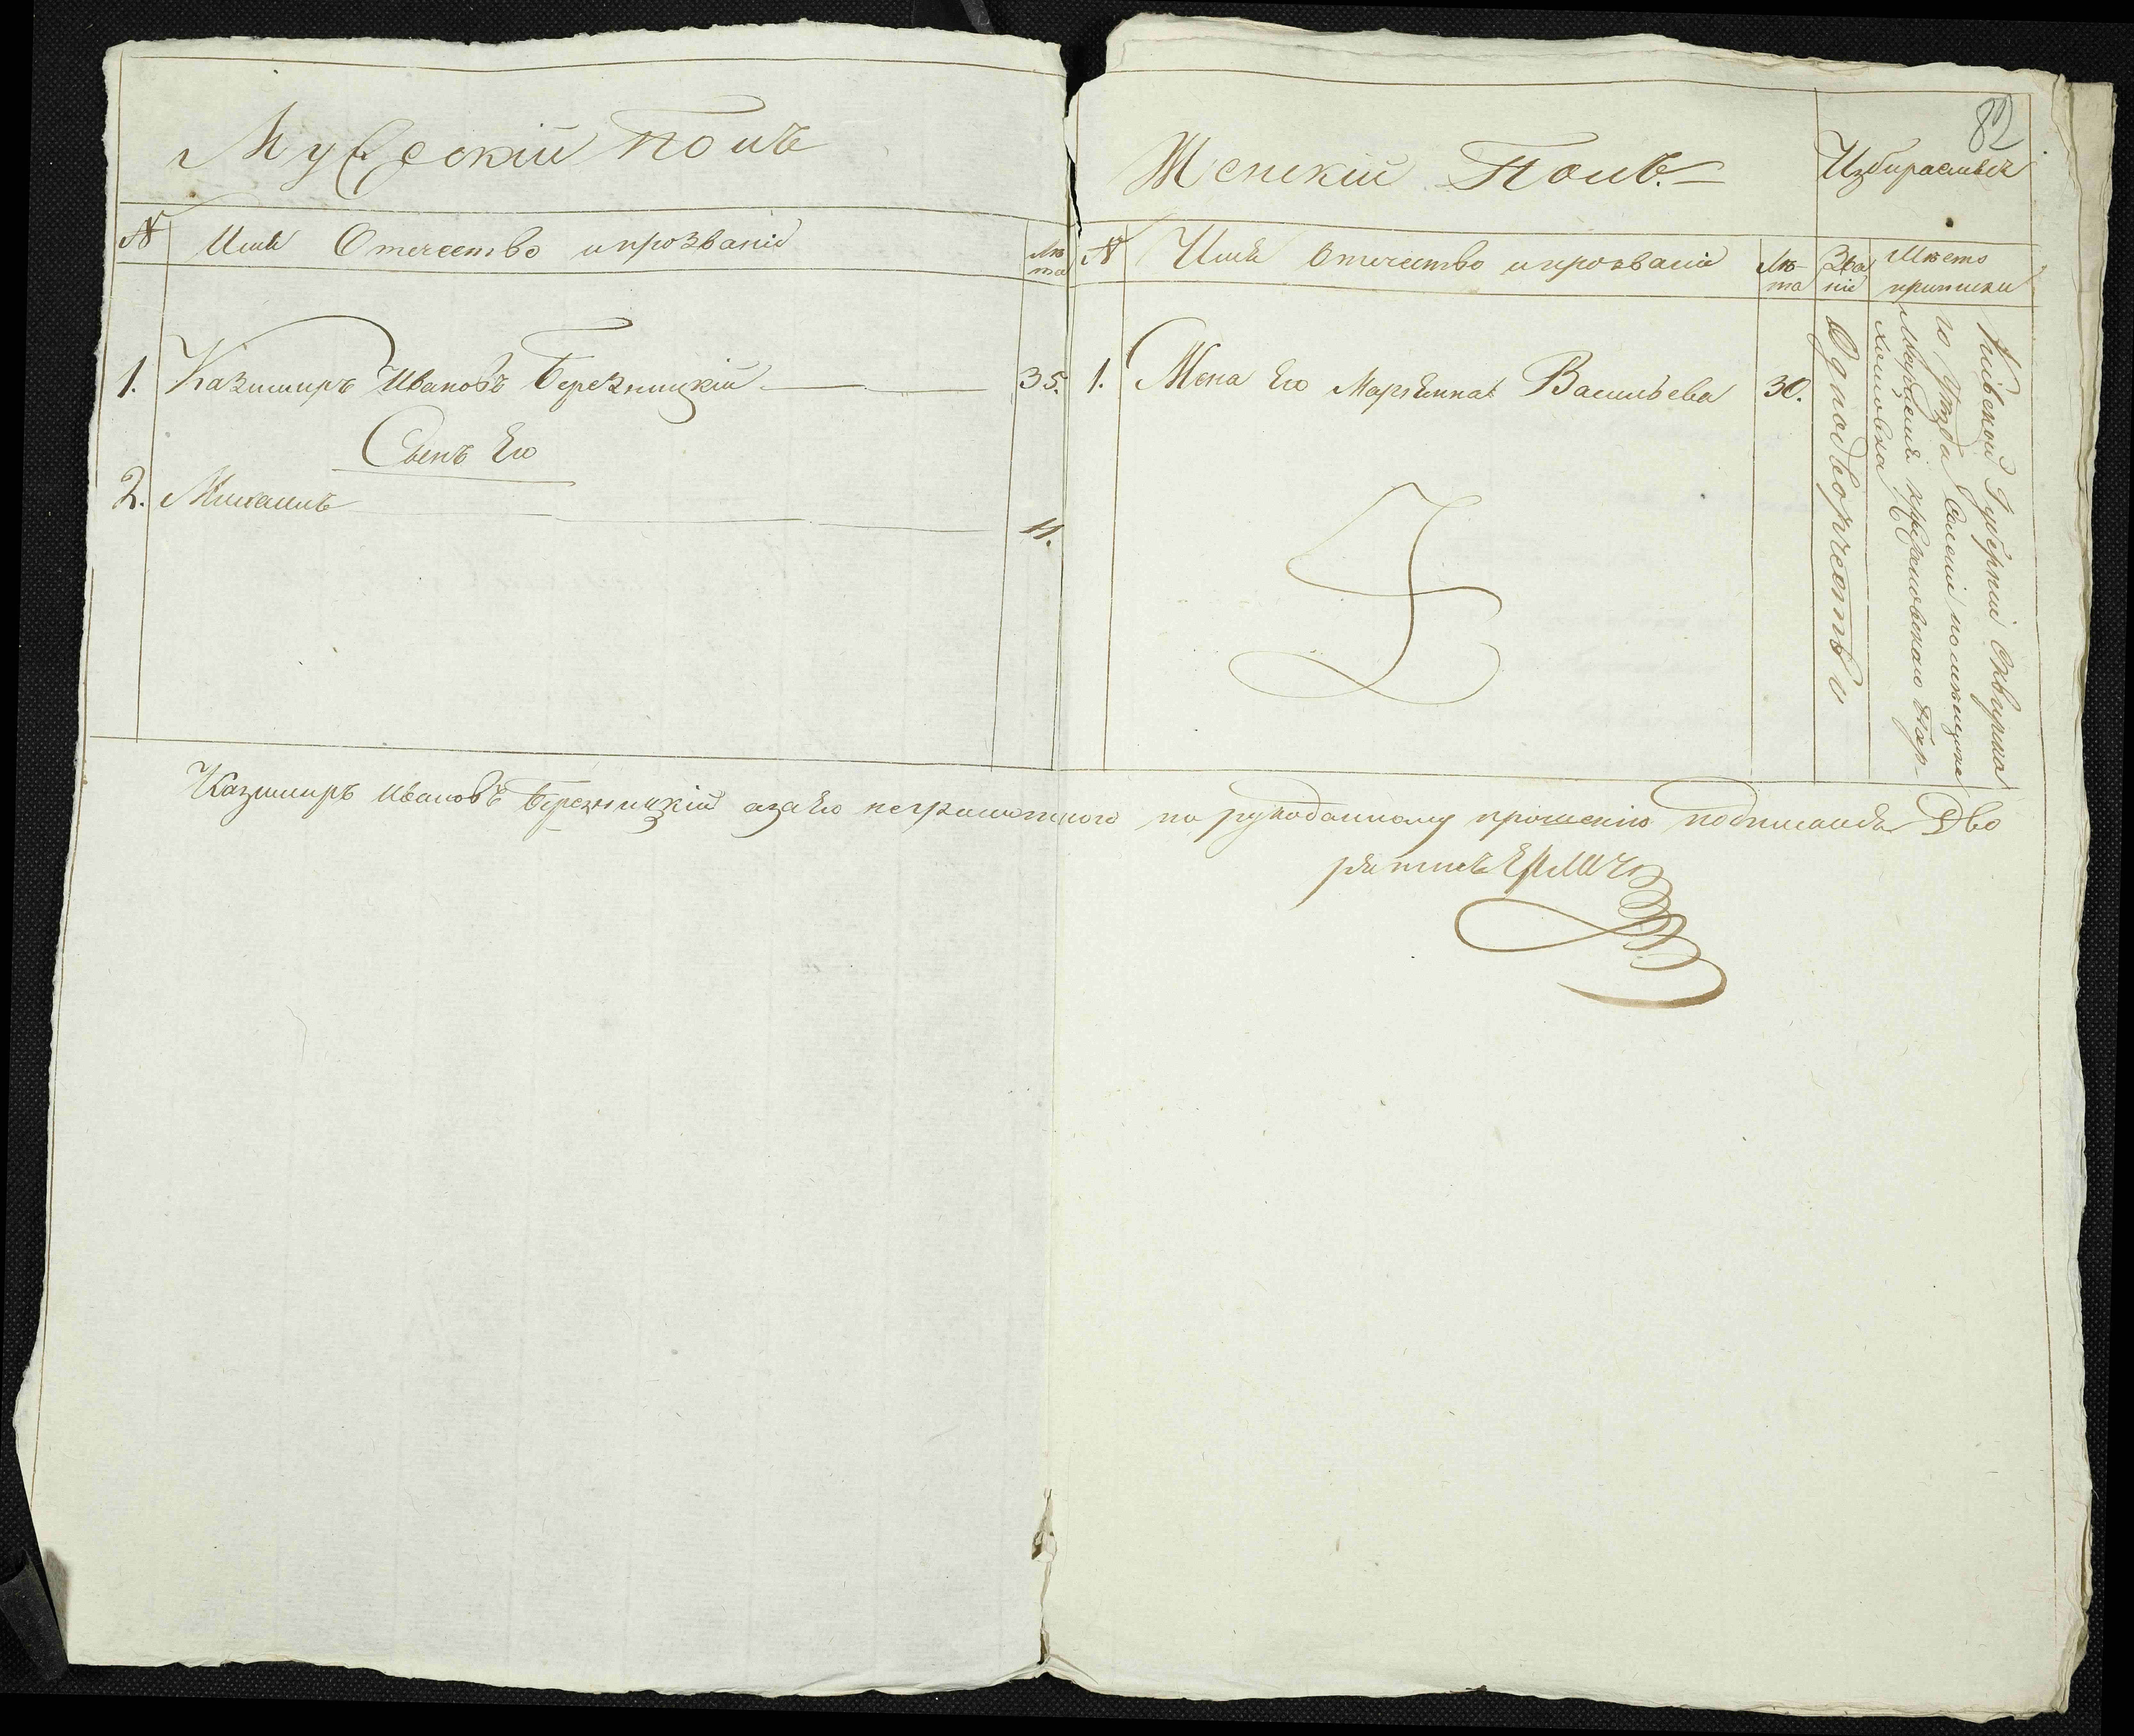 Мужескій Полъ
№ Имя Отечество и прозваніе Лѣ
та
1. Казимиръ Ивановъ Березницкій 35.
Сынъ Его
2. Михаилъ 11.
82
Женскій Полъ.
Избираемыя
№ Имя Отечество и прозваніе Лѣ-
та
Зва
ніе
Мѣсто
приписки
1. Жена Его Маріанна Васильева 30.
Однодворчество
Кіевской Губерніи Сквирска
го Уѣзда Селеніи помѣщика
Казимиръ Ивановъ Березницкій а за Его неграмотного по рукоданному прошенію подписался Дво
рянинъ